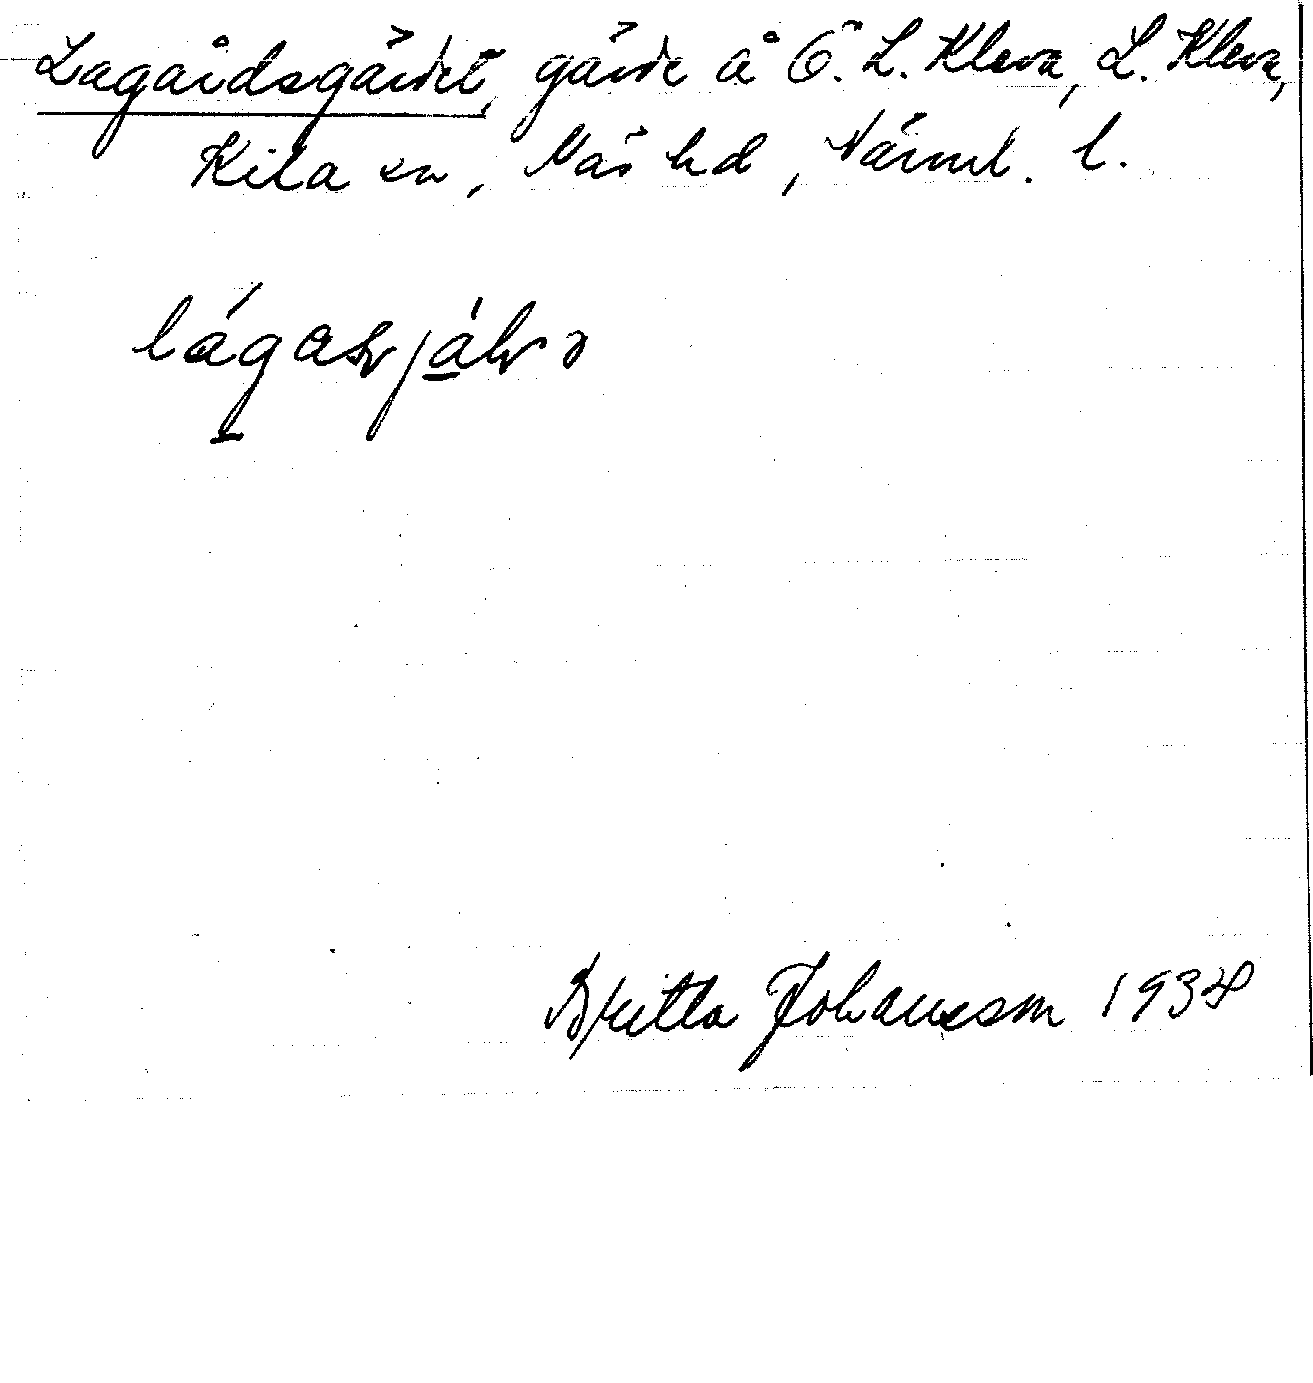 Lagårdsgärdet, gärde å Ö. L. Kleva, L. Kleva,
Kila sn, Näs hd, Värml. l.
Britta Johansson 1934